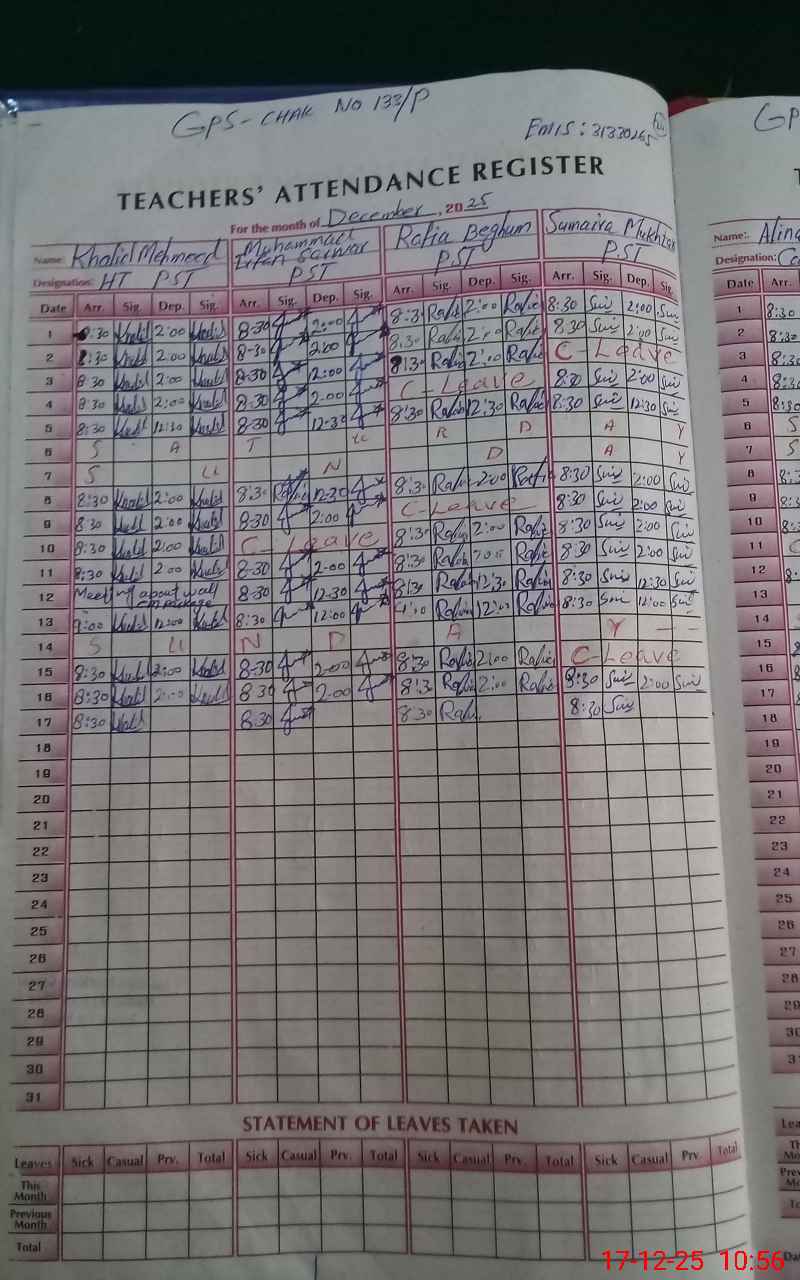 GPS - CHAK NO 133/P
EMIS: 31330265
GP
TEACHERS' ATTENDANCE REGISTER
For the month of December, 2025
Name: Khalid Mehmeed Muhammad Irfan Sarwar Rafia Beghum Sumaira Mukhtar Name: Alina
Designation: HT PST PST PST PST Designation:
Date Arr. Sig. Dep. Sig. Arr. Sig. Dep. Sig. Arr. Sig. Dep. Sig. Arr. Sig. Dep. Sig. Date Arr.
1 8:30 Khalid 2:00 Khalid 8-30 2:00 8:30 Rafia 2:00 Rafia 8:30 Sui 2:00 Sui 1 8:30
2 8:30 Khalid 2:00 Khalid 8-30 2:00 8:30 Rafia 2:00 Rafia 8:30 Sui 2:00 Sui 2 8:30
3 8:30 Khalid 2:00 Khalid 8-30 2:00 8:30 Rafia 2:00 Rafia C - Leave 3
4 8:30 Khalid 2:00 Khalid 8-30 2-00 C - Leave 8:30 Sui 2:00 Sui 4
5 8:30 Khalid 12:30 Khalid 8-30 12-30 8:30 Rafia 12:30 Rafia 8:30 Sui 12:30 Sui 5 8:30
6 S A T U R D A Y 6 S
7 S U N D A Y 7 S
8 8:30 Khalid 2:00 Khalid 8:30 12-30 8:30 Rafia 2:00 Rafia 8:30 Sui 2:00 Sui 8
9 8:30 Khalid 2:00 Khalid 8-30 2:00 C - Leave 8:30 Sui 2:00 Sui 9
10 8:30 Khalid 2:00 Khalid C - Leave 8:30 Rafia 2:00 Rafia 8:30 Sui 2:00 Sui 10
11 8:30 Khalid 2:00 Khalid 8-30 2-00 8:30 Rafia 2:00 Rafia 8:30 Sui 2:00 Sui 11
12 Meeting about wall on package 8-30 12-30 8:30 Rafia 12:30 Rafia 8:30 Sui 12:30 Sui 12
13 9:00 Khalid 12:00 Khalid 8:30 12:00 Rafia 12:00 Rafia 8:30 Sui 12:00 Sui 13
14 S U N D A Y 14
15 8:30 Khalid 2:00 Khalid 8-30 2-00 8:30 Rafia 2:00 Rafia C - Leave 15
16 8:30 Khalid 2:00 Khalid 8-30 2-00 8:30 Rafia 2:00 Rafia 8:30 Sui 2:00 Sui 16
17 8:30 Khalid 8-30 8:30 Rafia 8:30 Sui 17
18 18
19 19
20 20
21 21
22 22
23 23
24 24
25 25
26 26
27 27
28 28
29 29
30 30
31
STATEMENT OF LEAVES TAKEN
Leaves Sick Casual Prv. Total Sick Casual Prv. Total Sick Casual Prv. Total Sick Casual Prv. Total
This Month
Previous Month
Total
17-12-25 10:56